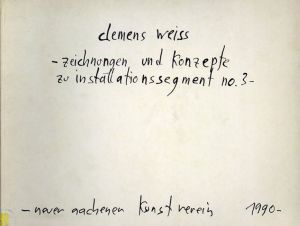 clemens weiss
- zeichnungen und konzepte
zu installationssegment no. 3 -
- neuer aachener kunstverein 1990 -